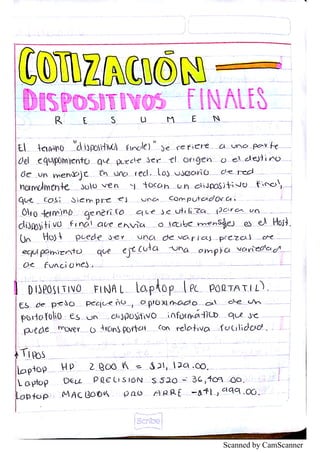 COTIZACIÓN
DISPOSITIVOS FINALES
R E S U M E N
El termino "dispositivo final" se refiere a una parte
del equipamiento que puede ser el origen o el destino
de un mensaje en una red. Los usuario de red
normalmente solo ven y tocan un dispositivo final,
que casi siempre es una computadora.
Otro termino generico que se utiliza para un
dispositivo final que envia o recibe mensajes es el Host.
Un Host puede ser una de varias piezas de
equipamiento que ejecuta una amplia variedad
de funciones.
DISPOSITIVO FINAL laptop (PC PORTATIL).
Es de peso pequeño, aproximado al de un
portafolio es un dispositivo informático que se
puede mover o transportar con relativa facilidad.
TIPOS
Laptop HP Z BOOK = $21,129.00.
Laptop DELL PRECISION 5520 = 36,409.00.
Laptop MACBOOK PRO MPRE = $41,999.00.
Scribe
Scanned by CamScanner